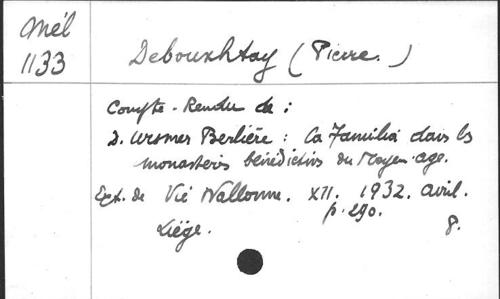 Mél
1133
Debouxhtay (Pierre.)
Compte-Rendu de :
D. Ursmer Berlière : La Familia dans les
monastères bénédictins du Moyen-age.
Ext. de Vie Wallonne. XII. 1932. Avril.
p. 290.
Liège.
8.